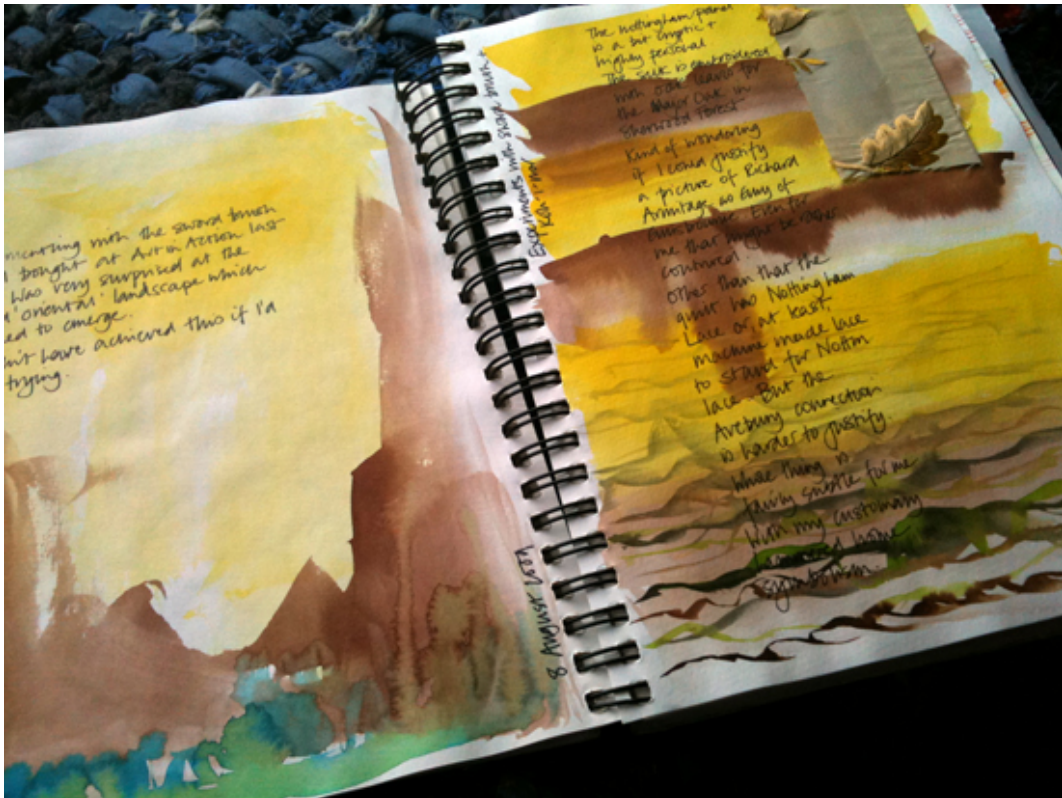 menting with the sword brush
I bought at Art in Action last
was very surprised at the
'oriental' landscape which
ed to emerge.
n't have achieved this if I'd
trying.
8 August 2009
Experiments with shape brush +
The Nottingham panel
is a bit cryptic +
highly personal
The silk is embroidered
with oak leaves for
the Major Oak in
Sherwood Forest
Kind of wondering
if I could justify
a picture of Richard
Armitage as Guy of
Guisbourne. Even for
me that might be rather
contrived.
Other than that the
quilt has Nottingham
Lace or, at least,
machine made lace
to stand for Nottm
lace. But the
Avebury connection
is harder to justify.
whole thing is
fairly subtle for me
with my customary
home
symbolism.